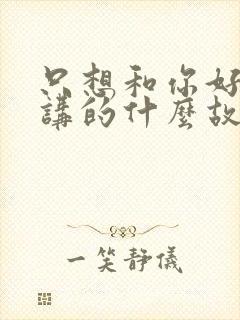 只想和你好
講的什麼故
一笑靜儀